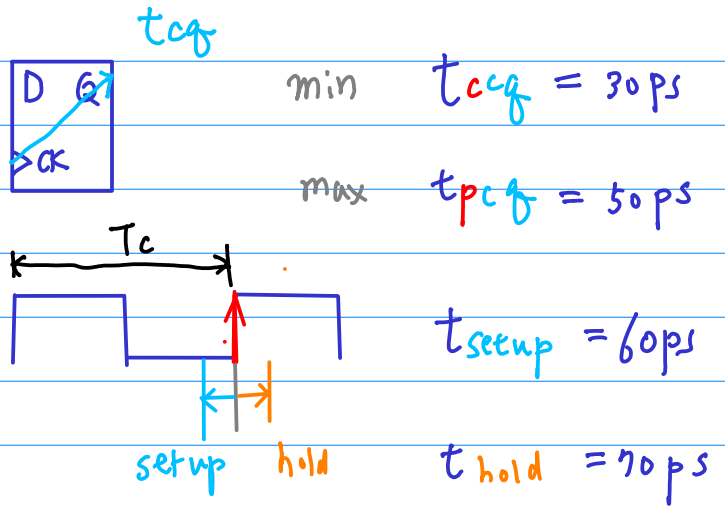 tcq
D Q
CK
min tccq = 30ps
max tpcq = 50ps
Tc
tsetup = 60ps
setup hold
thold = 70ps